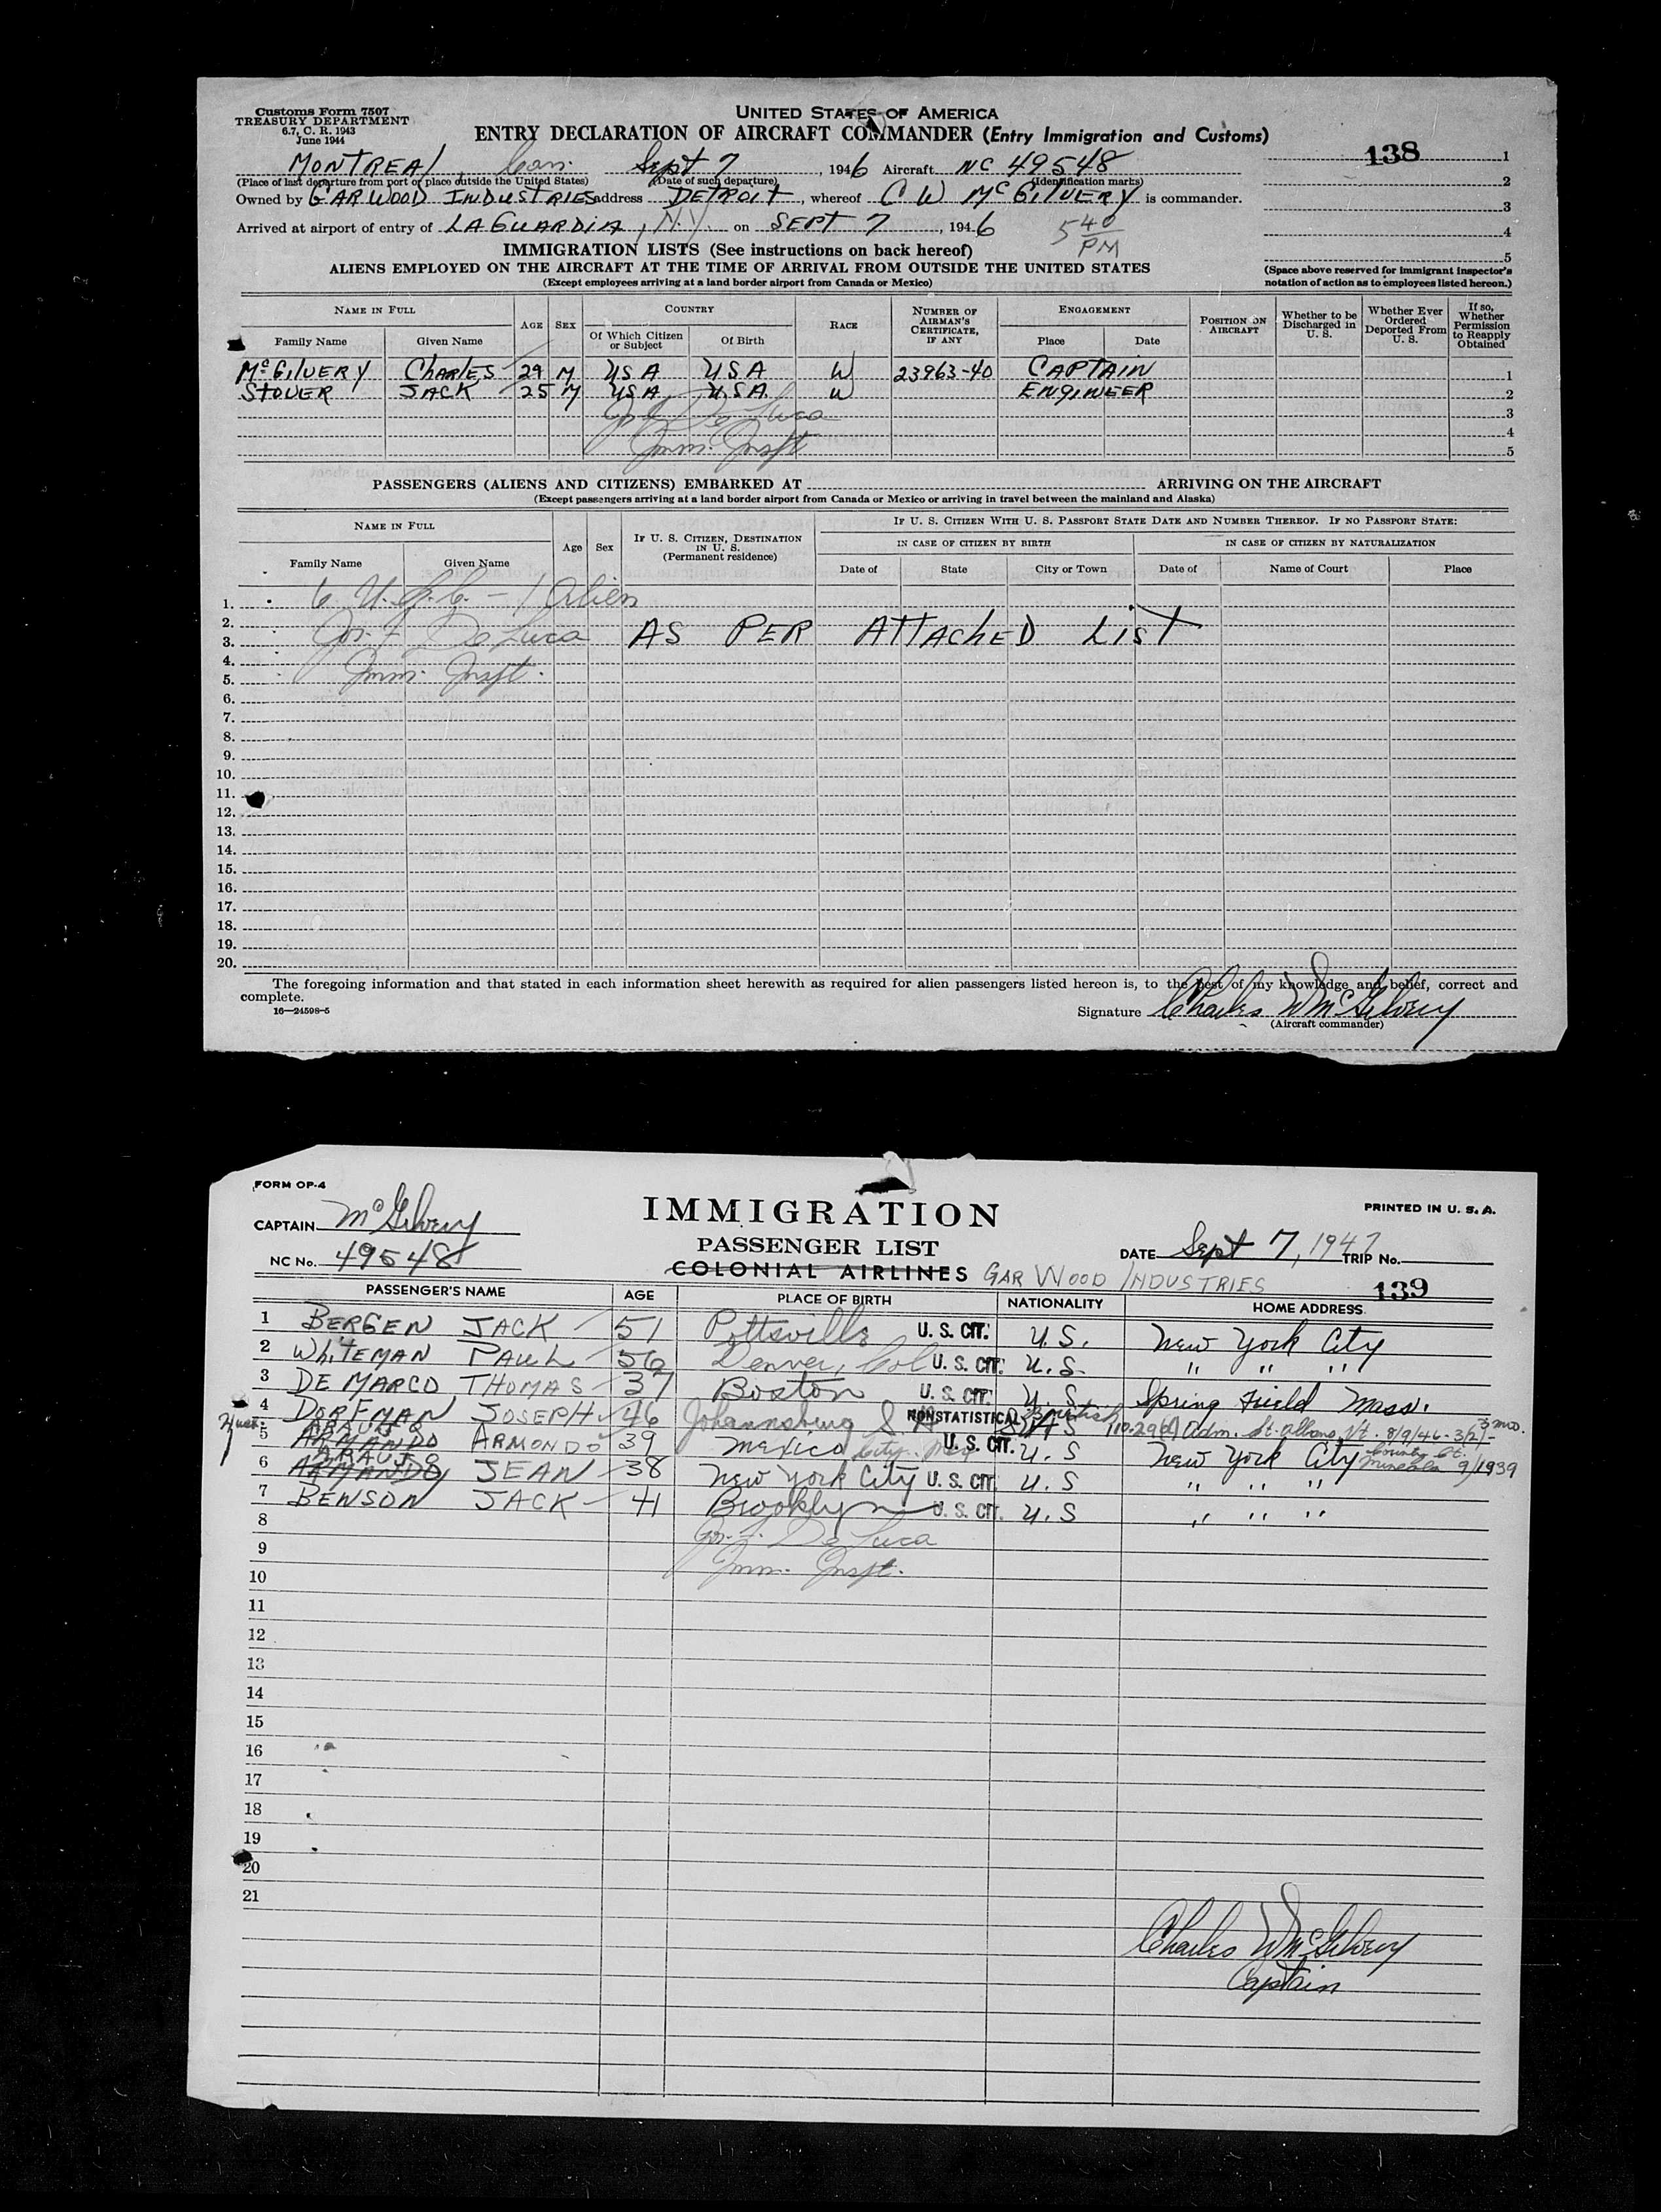 Customs Form 7507
TREASURY DEPARTMENT
6.7, C. R. 1943
June 1944
UNITED STATES OF AMERICA
ENTRY DECLARATION OF AIRCRAFT COMMANDER (Entry Immigration and Customs)
138
MONTREAL Can. Sept 7, 1946 Aircraft NC 49548
(Place of last departure from port or place outside the United States) (Date of such departure) (Identification marks)
Owned by GARWOOD INDUSTRIES address DETROIT, whereof C W McGILVERY is commander.
Arrived at airport of entry of LAGUARDIA, N.Y. on SEPT 7, 1946 5 40 PM
1
2
3
4
5
(Space above reserved for immigrant inspector's notation of action as to employees listed hereon.)
IMMIGRATION LISTS (See instructions on back hereof)
ALIENS EMPLOYED ON THE AIRCRAFT AT THE TIME OF ARRIVAL FROM OUTSIDE THE UNITED STATES
(Except employees arriving at a land border airport from Canada or Mexico)
NAME IN FULL AGE SEX COUNTRY RACE NUMBER OF AIRMAN'S CERTIFICATE, IF ANY ENGAGEMENT POSITION ON AIRCRAFT Whether to be Discharged in U. S. Whether Ever Ordered Deported From U. S. If so, Whether Permission to Reapply Obtained
Family Name Given Name Of Which Citizen or Subject Of Birth Place Date
McGILVERY CHARLES 29 M USA USA W 23963-40 CAPTAIN 1
STOVER JACK 25 M USA USA. W ENGINEER 2
Jos. F. De Luca 3
Imm. Inspt 4
5
PASSENGERS (ALIENS AND CITIZENS) EMBARKED AT ARRIVING ON THE AIRCRAFT
(Except passengers arriving at a land border airport from Canada or Mexico or arriving in travel between the mainland and Alaska)
NAME IN FULL Age Sex IF U. S. CITIZEN, DESTINATION IN U. S. (Permanent residence) IF U. S. CITIZEN WITH U. S. PASSPORT STATE DATE AND NUMBER THEREOF. IF NO PASSPORT STATE:
IN CASE OF CITIZEN BY BIRTH IN CASE OF CITIZEN BY NATURALIZATION
Family Name Given Name Date of State City or Town Date of Name of Court Place
1. 6 U.S.C. - 1 Alien
2.
3. Jos. F. De Luca AS PER ATTACHED LIST
4.
5. Imm. Inspt.
6.
7.
8.
9.
10.
11.
12.
13.
14.
15.
16.
17.
18.
19.
20.
The foregoing information and that stated in each information sheet herewith as required for alien passengers listed hereon is, to the best of my knowledge and belief, correct and
complete.
16—24598-5
Signature Charles W McGilvery
(Aircraft commander)
FORM OP-4
IMMIGRATION
PRINTED IN U. S. A.
CAPTAIN McGilvery
PASSENGER LIST
NC No. 49548
DATE Sept 7, 1947 TRIP No.
COLONIAL AIRLINES GAR WOOD INDUSTRIES
139
PASSENGER'S NAME AGE PLACE OF BIRTH NATIONALITY HOME ADDRESS
1 BERGEN JACK 51 Pottsville U. S. CIT. U.S. New York City
2 WHITEMAN PAUL 56 Denver, Col U. S. CIT. U.S. " " "
3 DE MARCO THOMAS 37 Boston U. S. CIT. U.S. Spring Field Mass.
4 DORFMAN JOSEPH 46 Johannsburg S A NONSTATISTICAL British Adm. St. Albans, Vt. 8/9/46 - 3(2) - 3 mo.
ARAUJO
5 ARMANDO ARMONDO 39 Mexico City. Mex U. S. CIT. U.S New York City County Ct. Mineola 9/1939
ARAUJO
6 ARMANDO JEAN 38 New York City U. S. CIT. U.S " " "
7 BENSON JACK 41 Brooklyn U. S. CIT. U.S " " "
8 Jos. F. De Luca
9 Imm. Inspt.
10
11
12
13
14
15
16
17
18
19
20
21
Charles W McGilvery
Captain